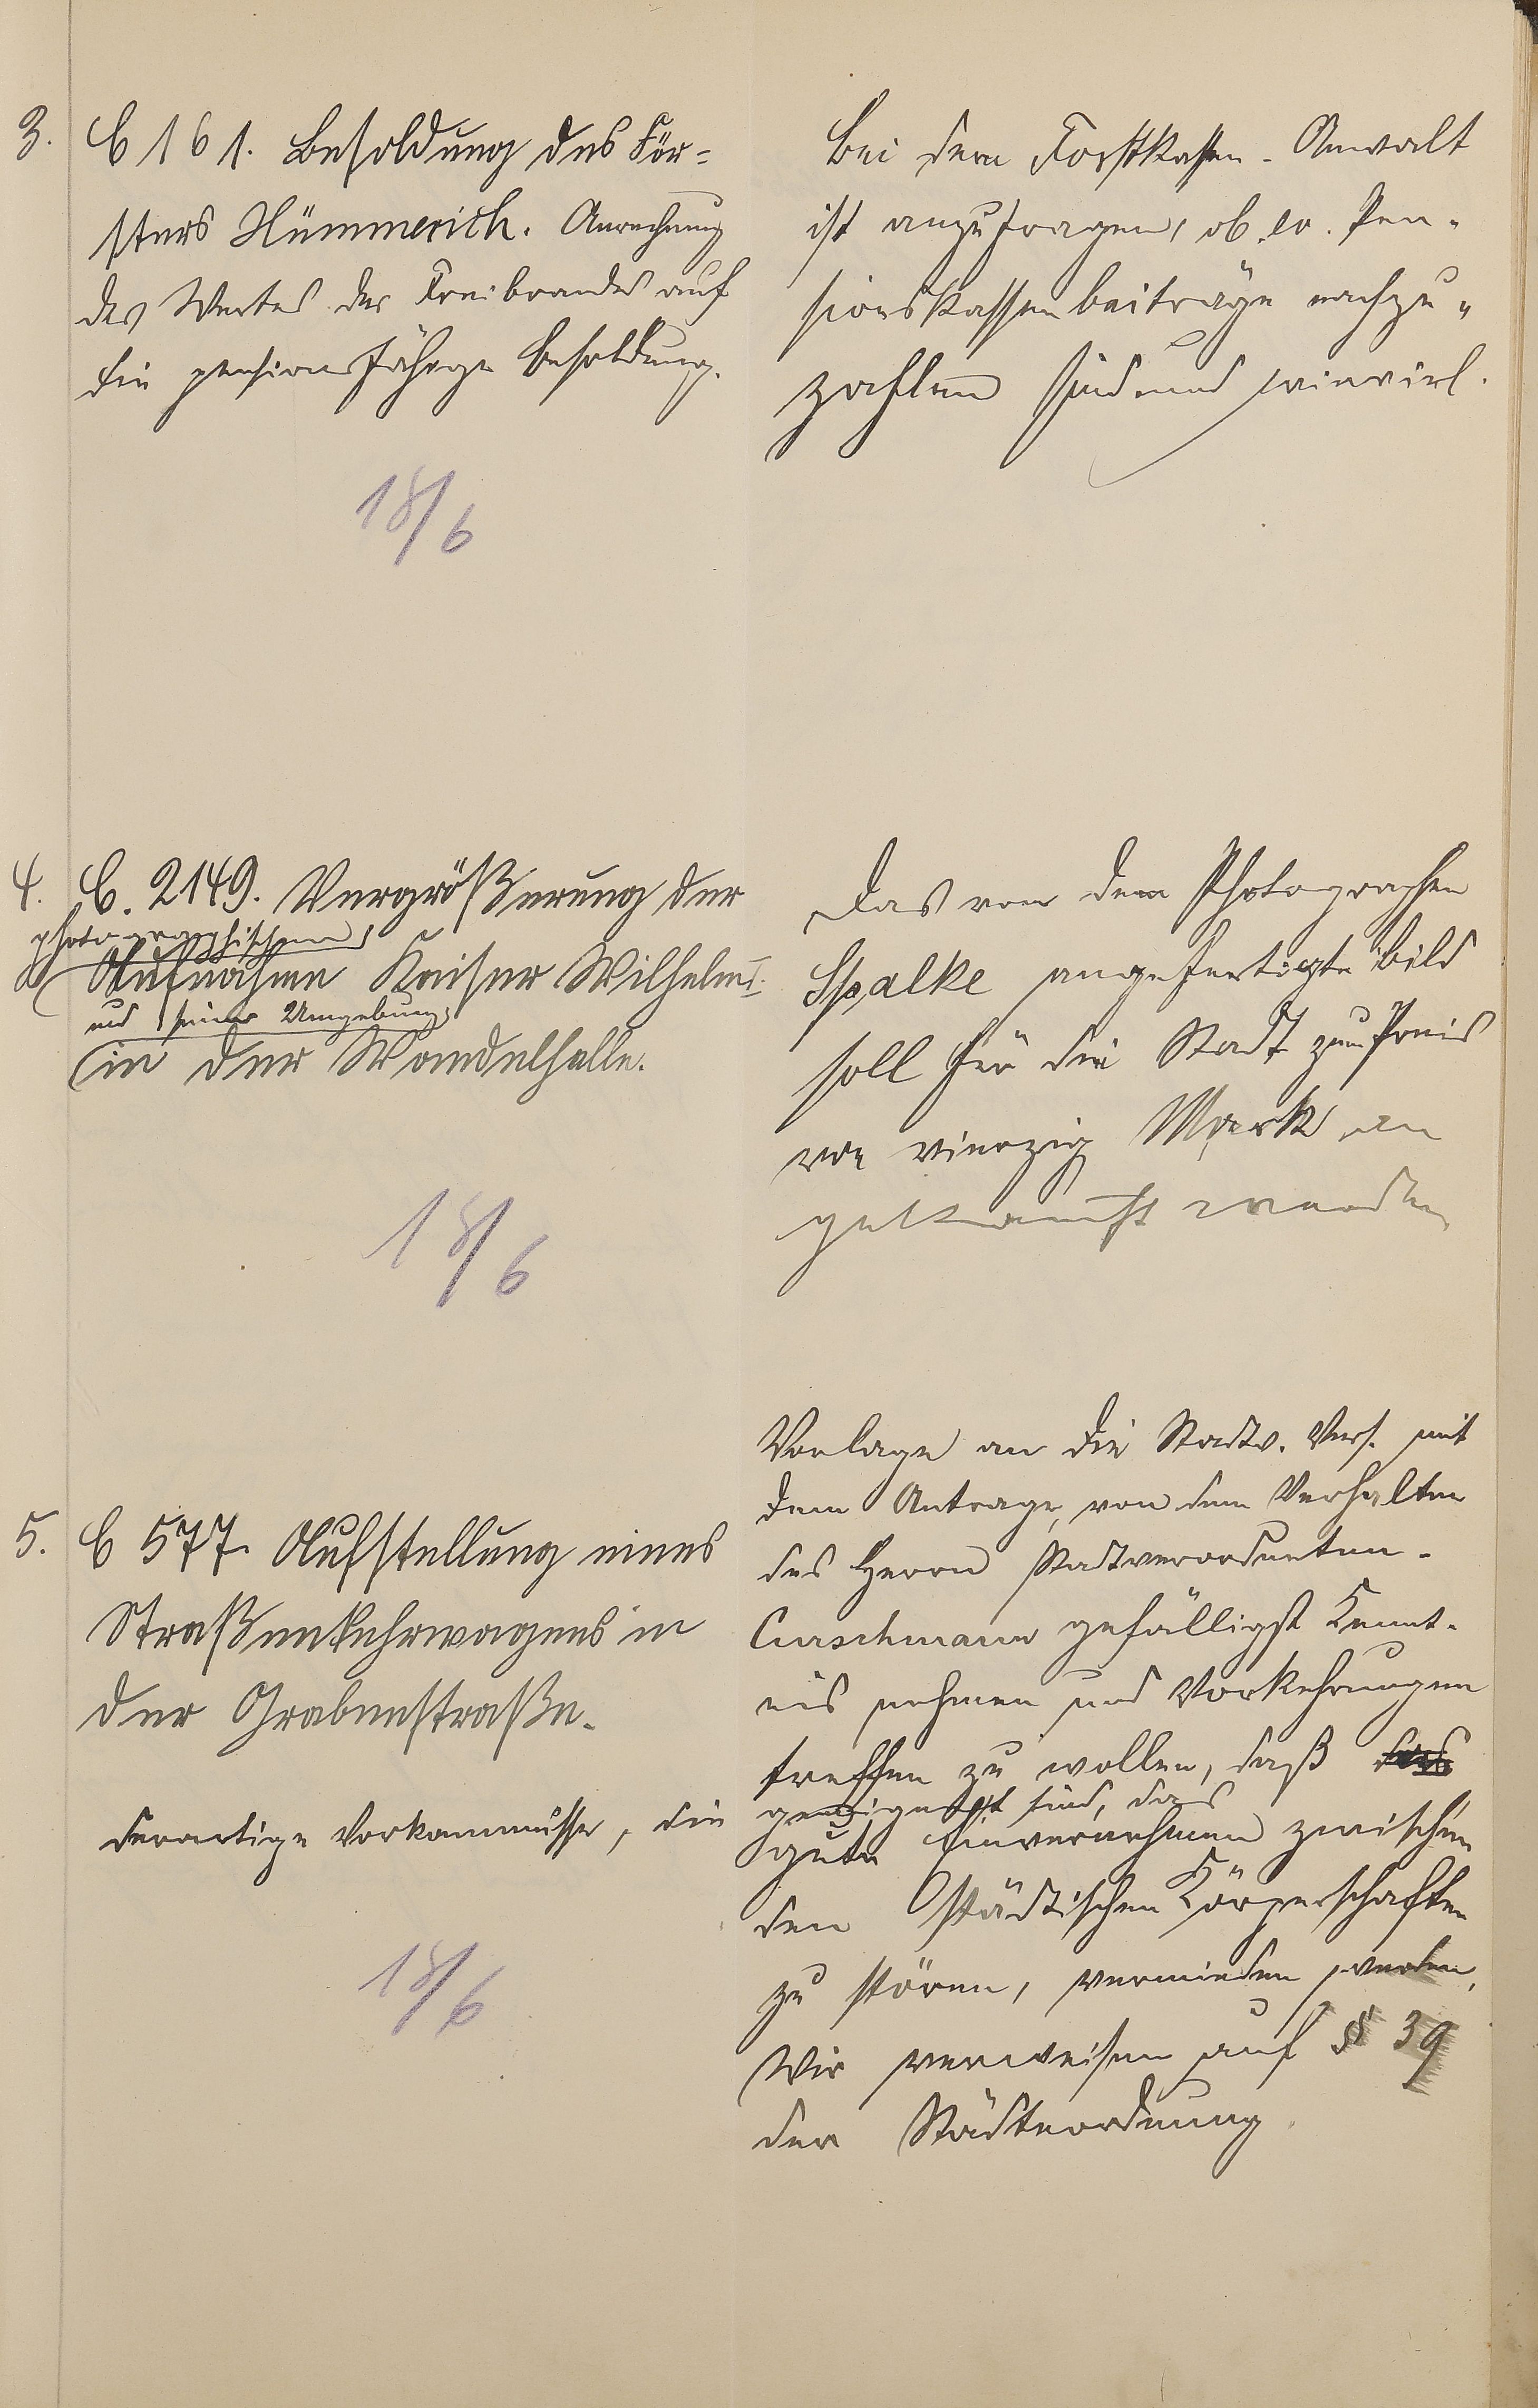 3. C 161. Besoldung des För-
sters Hümmerich. Anrechnung
des Wertes des Freibrandes auf
die pensionsfähige Besoldung.
18/6
Bei dem Forstkassen-Anwalt
ist anzufragen, ob ev. Pen-
sionskassenbeiträge nachzu-
zahlen sind und wieviel.
4. C. 2149. Vergrößerung der
photographischen
Aufnahme Kaiser Wilhelms
und seiner Umgebung
in der Wandelhalle.
18/6
Das von dem Photographen
Spalke angefertigte Bild
soll für die Stadt zum Preis
von vierzig Mark an
gekauft werden
5. C 577. Aufstellung eines
Straßenkehrwagens in
der Grabenstraße.
18/6
Vorlage an die Stadtv. Vers. mit
dem Antrage, von dem Verhalten
des Herrn Stadtverordneten
Curschmann gefälligst Kennt-
nis nehmen und Vorkehrungen
treffen zu wollen, daß
derartige Vorkommnisse, die geeignet sind, das
gute Einvernehmen zwischen
den städtischen Körperschaften
zu stören, vermieden werden.
Wir verweisen auf § 39
der Städteordnung.